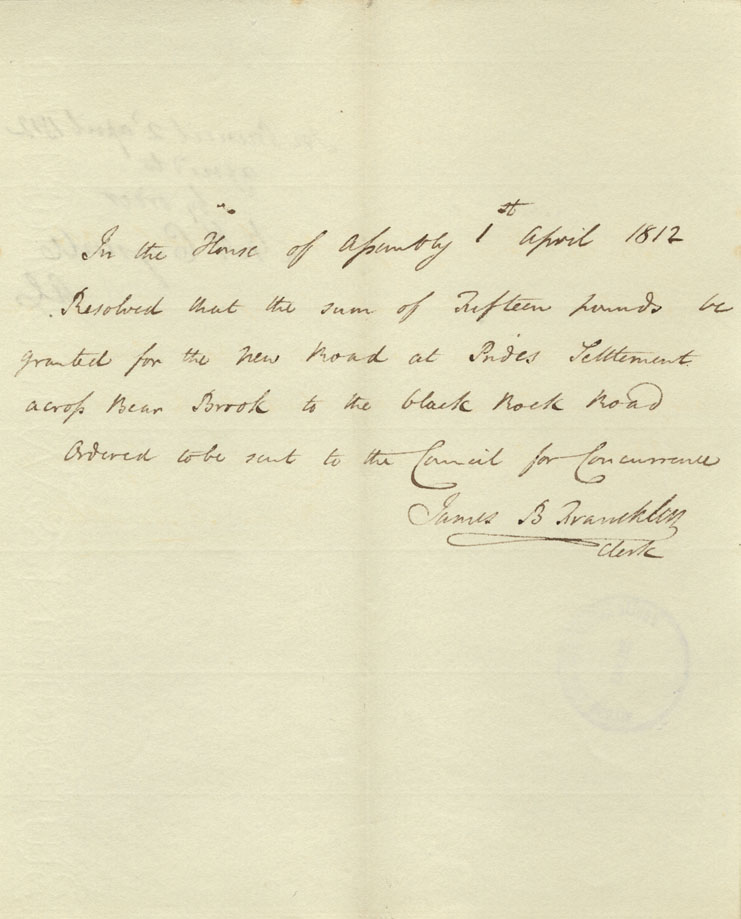 In the House of Assembly 1st April 1812
Resolved that the sum of Fifteen pounds be
granted for the New Road at Prides Settlement
across Bear Brook to the black Rock Road
Ordered to be sent to the Council for Concurrence
James B Francklin
Clerk